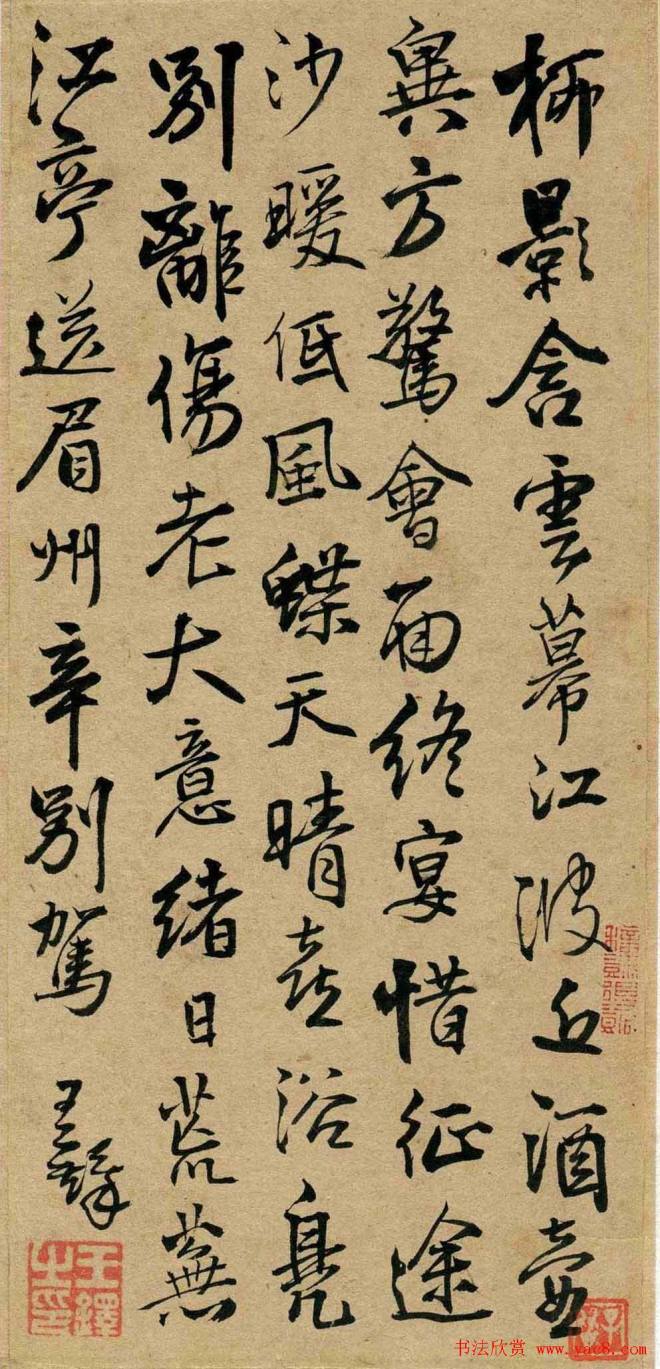 柳影含雲幕江波近酒壺
異方驚會面終宴惜征途
沙暖低風蝶天晴喜浴鳧
別離傷老大意緒日荒蕪
江亭送眉州辛別駕
王鐸
王鐸之印
书法欣赏 www.yac8.com